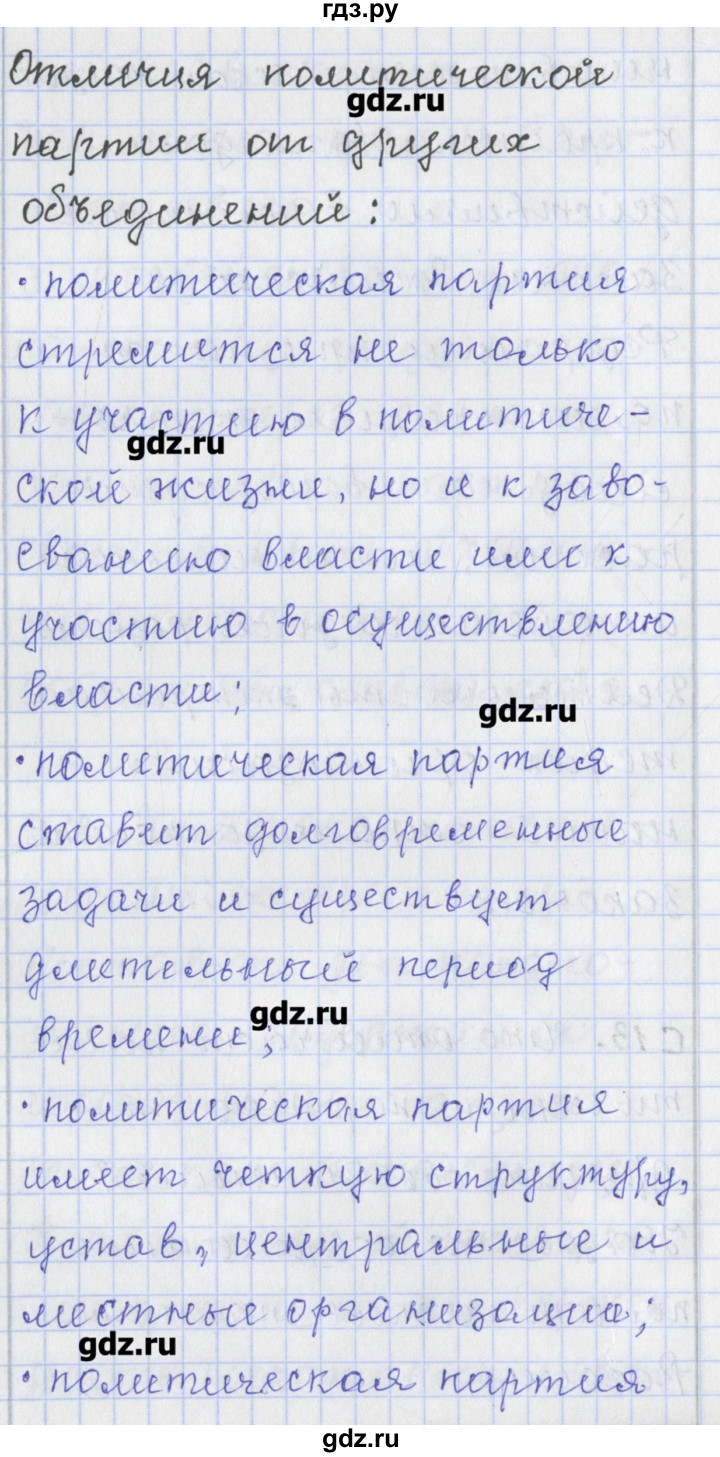 гдз.ру
Отличия политической
gdz.ru
партии от других
объединений:
• политическая партия
стремится не только
к участию в политиче-
gdz.ru
ской жизни, но и к заво-
еванию власти или к
участию в осуществлению
власти;
gdz.ru
• политическая партия
ставит долговременные
задачи и существует
длительный период
gdz.ru
времени;
• политическая партия
имеет четкую структуру,
устав, центральные и
местные организации;
gdz.ru
• политическая партия
gdz.ru